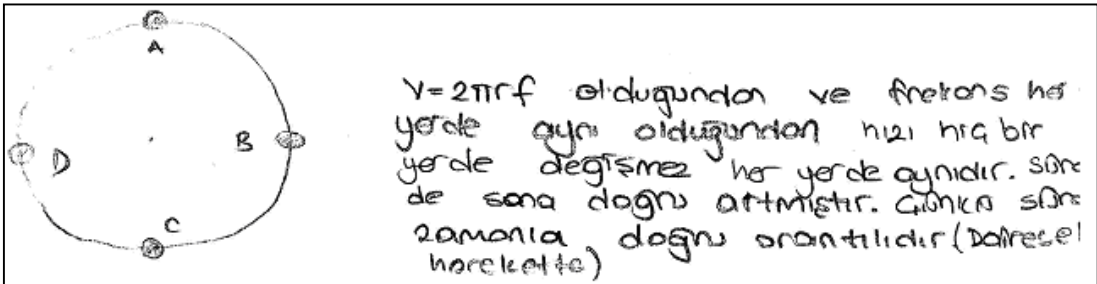 A
B
D
C
V=2πrf olduğundan ve frekans her
yerde aynı olduğundan hızı hiç bir
yerde değişmez her yerde aynıdır. Süre
de sona doğru artmıştır. Çünkü süre
zamanla doğru orantılıdır (Dairesel
harekette)